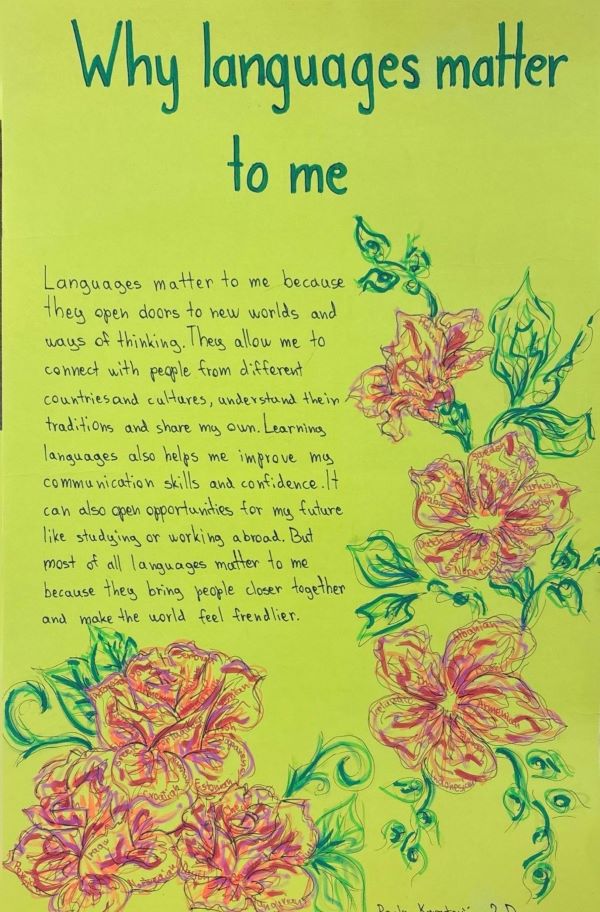 Why languages matter
to me
Languages matter to me because
they open doors to new worlds and
ways of thinking. They allow me to
connect with people from different
countries and cultures, understand their
traditions and share my own. Learning
languages also helps me improve my
communication skills and confidence. It
can also open opportunities for my future
like studying or working abroad. But
most of all languages matter to me
because they bring people closer together
and make the world feel frendlier.
Croatian